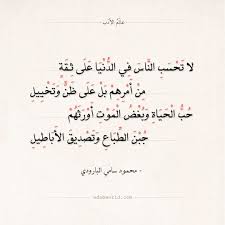 عالم الأدب
لا تَحْسَبِ النَّاسَ فِي الدُّنْيَا عَلَى ثِقَةٍ
مِنْ أَمْرِهِمْ بَلْ عَلَى ظَنٍّ وَتَخْيِيلِ
حُبُّ الْحَيَاةِ وَبُغْضُ الْمَوْتِ أَوْرَثَهُمْ
جُبْنَ الطِّبَاعِ وَتَصْدِيقَ الأَبَاطِيلِ
- محمود سامي البارودي -
adabworld.com